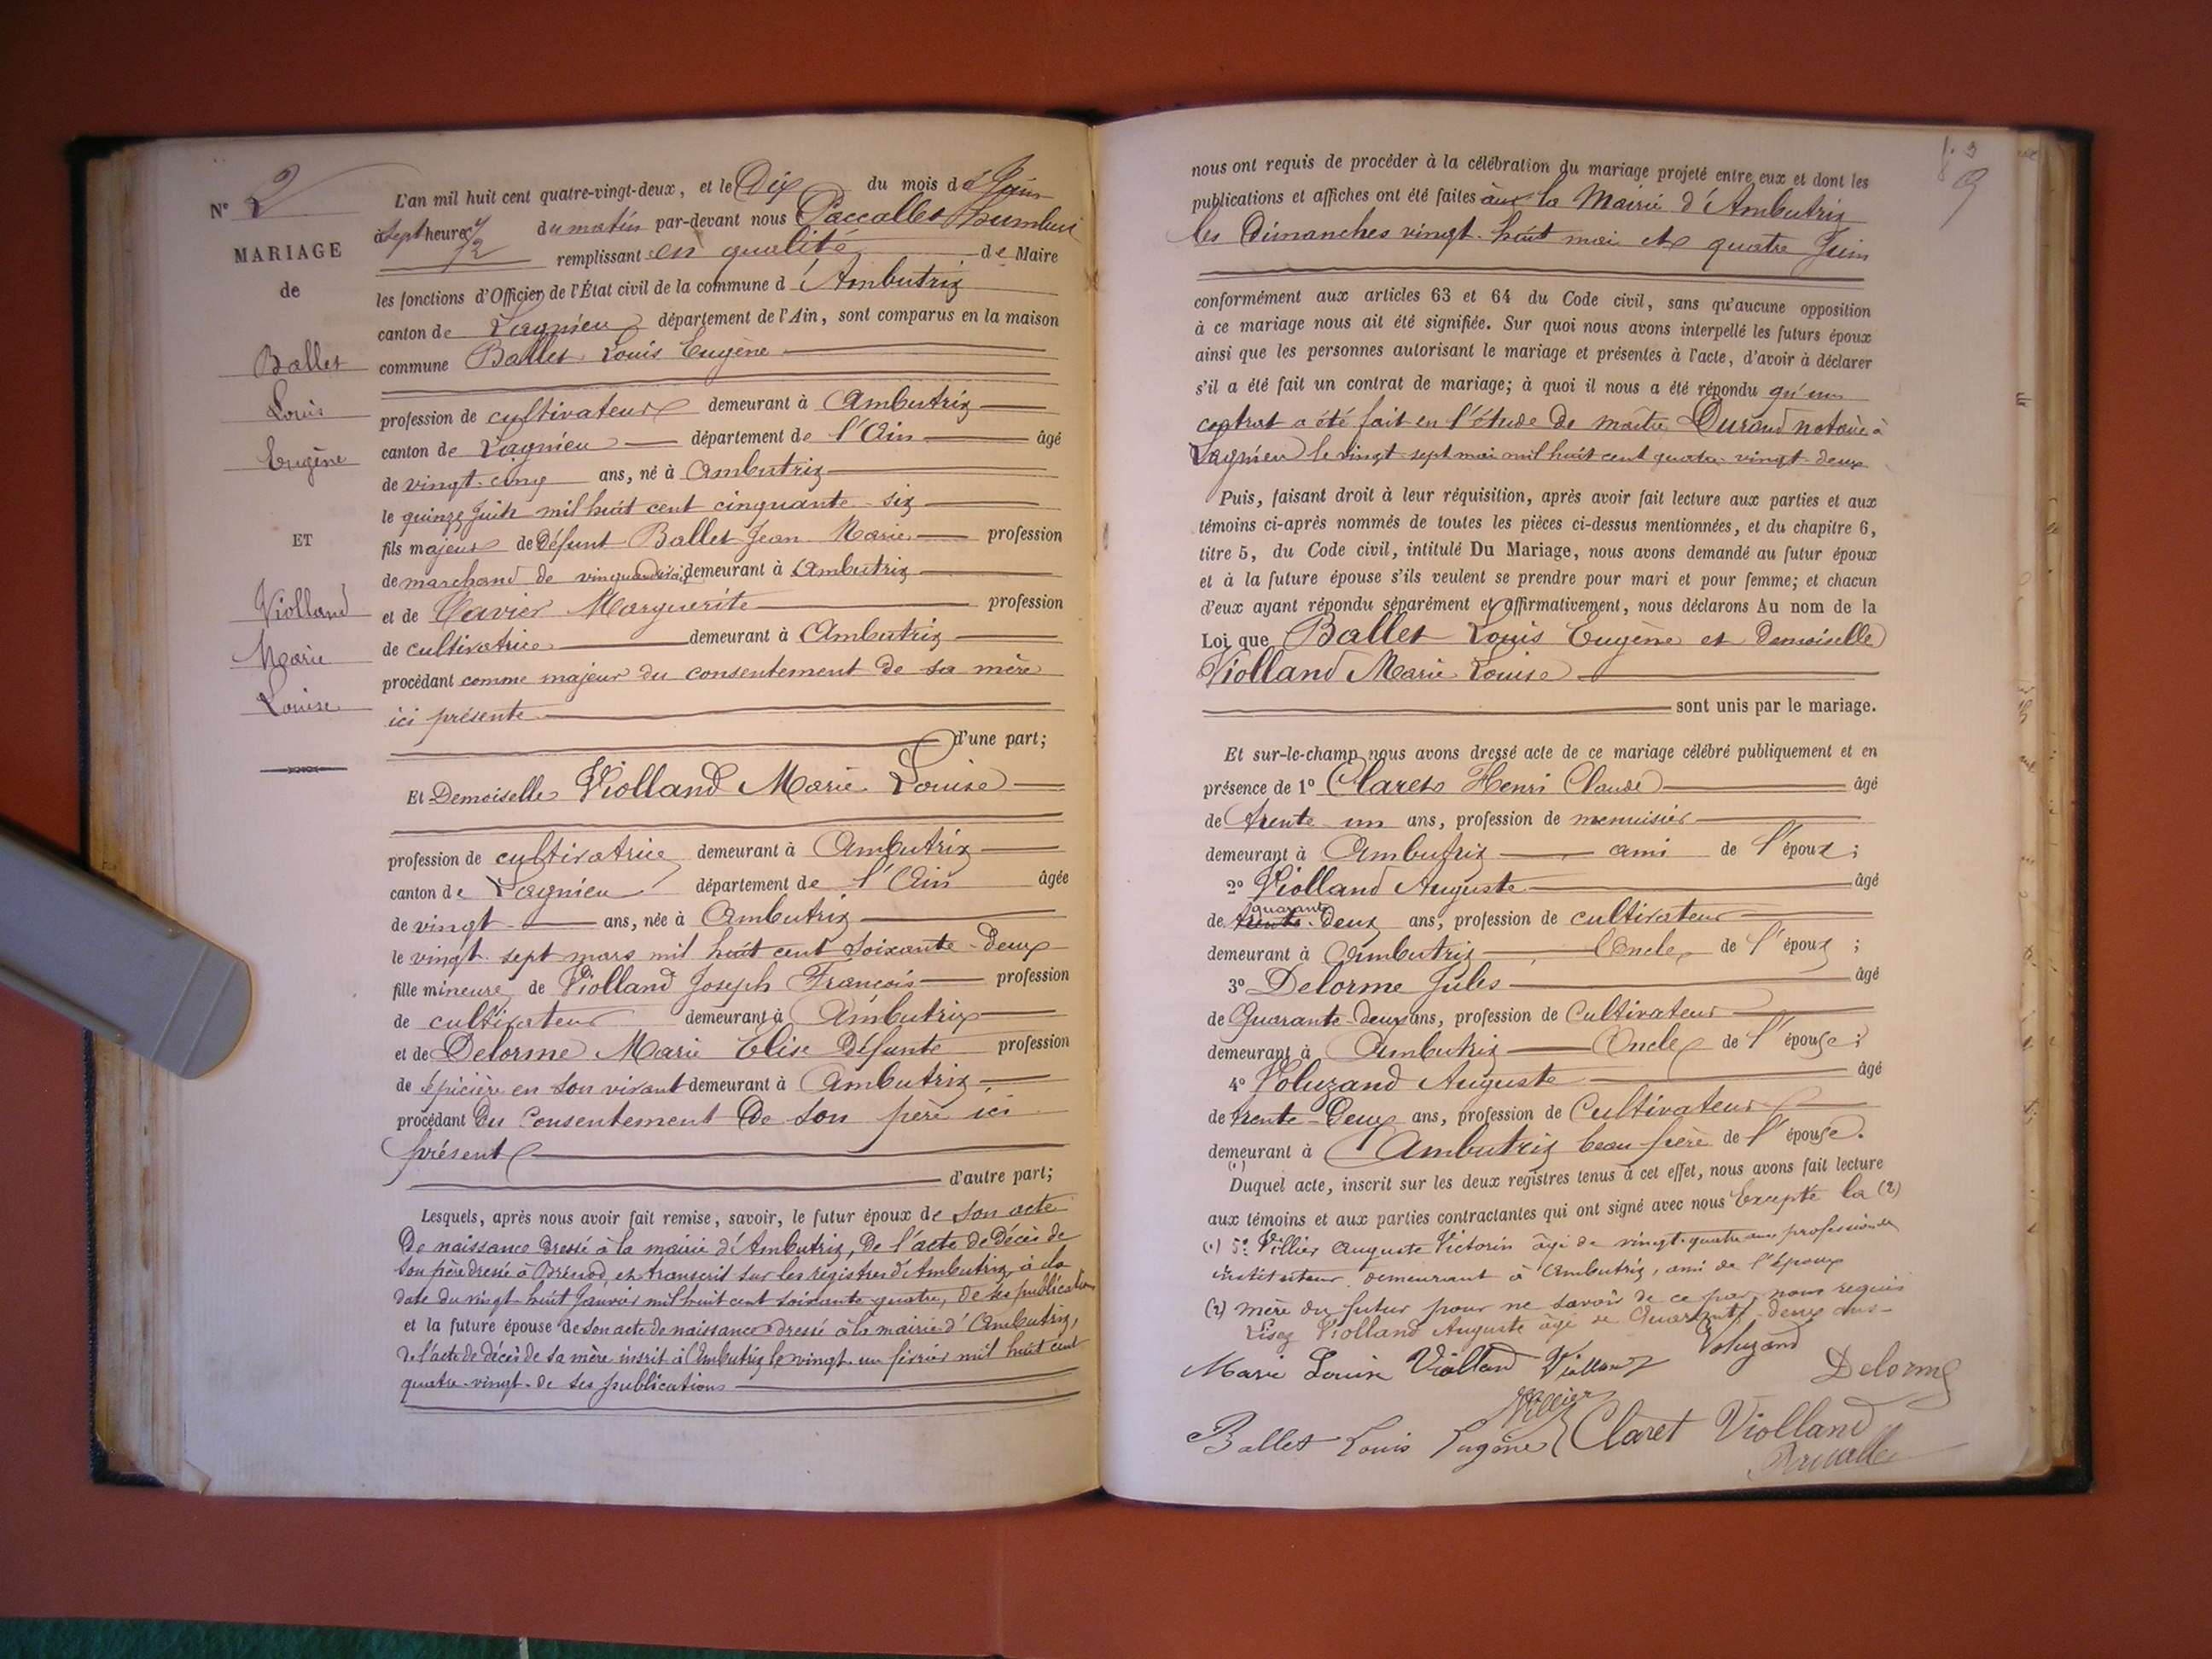 N° 2
MARIAGE
de
Ballet
Louis
Eugène
ET
Violland
Marie
Louise
L'an mil huit cent quatre-vingt-deux, et le Dix du mois de Juin
à sept heures 1/2 du matin par-devant nous Paccallet Humbert
remplissant en qualité de Maire
les fonctions d'Officier de l'État civil de la commune d'Ambutrix
canton de Lagnieu département de l'Ain, sont comparus en la maison
commune Ballet Louis Eugène
profession de cultivateur demeurant à Ambutrix
canton de Lagnieu département de l'Ain âgé
de vingt-cinq ans, né à Ambutrix
le quinze Juin mil huit cent cinquante-six
fils majeur de Défunt Ballet Jean Marie profession
de marchand de demeurant à Ambutrix
et de Cavier Marguerite profession
de cultivatrice demeurant à Ambutrix
procédant comme majeur du consentement de sa mère
ici présente
d'une part;
Et Demoiselle Violland Marie Louise
profession de cultivatrice demeurant à Ambutrix
canton de Lagnieu département de l'Ain âgée
de vingt ans, née à Ambutrix
le vingt-sept mars mil huit cent soixante-deux
fille mineure de Violland Joseph François profession
de cultivateur demeurant à Ambutrix
et de Delorme Marie Elise Défunte profession
de épicière en son vivant demeurant à Ambutrix
procédant Du Consentement De son père ici
présent
d'autre part;
Lesquels, après nous avoir fait remise, savoir, le futur époux de son acte
De naissance dressé à la mairie d'Ambutrix, De l'acte de Décès de
son père dressé à Brénod, et transcrit sur les registres d'Ambutrix, à la
date du vingt-huit Janvier mil huit cent soixante-quatre, de ses publications
et la future épouse de son acte de naissance dressé à la mairie d'Ambutrix,
de l'acte de décès de sa mère inscrit à Ambutrix le vingt-un février mil huit cent
quatre-vingt-de ses publications
9
nous ont requis de procéder à la célébration du mariage projeté entre eux et dont les
publications et affiches ont été faites à la Mairie d'Ambutrix
les Dimanches vingt-huit mai et quatre Juin
conformément aux articles 63 et 64 du Code civil, sans qu'aucune opposition
à ce mariage nous ait été signifiée. Sur quoi nous avons interpellé les futurs époux
ainsi que les personnes autorisant le mariage et présentes à l'acte, d'avoir à déclarer
s'il a été fait un contrat de mariage; à quoi il nous a été répondu qu'un
contrat a été fait en l'étude De maître Durand notaire à
Lagnieu le vingt-sept mai mil huit cent quatre-vingt-deux
Puis, faisant droit à leur réquisition, après avoir fait lecture aux parties et aux
témoins ci-après nommés de toutes les pièces ci-dessus mentionnées, et du chapitre 6,
titre 5, du Code civil, intitulé Du Mariage, nous avons demandé au futur époux
et à la future épouse s'ils veulent se prendre pour mari et pour femme; et chacun
d'eux ayant répondu séparément et affirmativement, nous déclarons Au nom de la
Loi que Ballet Louis Eugène et Demoiselle
Violland Marie Louise
sont unis par le mariage.
Et sur-le-champ nous avons dressé acte de ce mariage célébré publiquement et en
présence de 1° Claret Henri Claude âgé
de trente un ans, profession de menuisier
demeurant à Ambutrix ami de l'époux;
2° Violland Auguste âgé
quarante
de trente-deux ans, profession de cultivateur
demeurant à Ambutrix Oncle de l'époux;
3° Delorme Jules âgé
de Quarante-deux ans, profession de Cultivateur
demeurant à Ambutrix Oncle de l'épouse;
4° Voluzand Auguste âgé
de trente-Deux ans, profession de Cultivateur
demeurant à Ambutrix beau-frère de l'épouse.
(1)
Duquel acte, inscrit sur les deux registres tenus à cet effet, nous avons fait lecture
aux témoins et aux parties contractantes qui ont signé avec nous Excepté la (2)
(1) 5° Villier Auguste Victorin âgé de vingt-quatre ans profession de
instituteur demeurant à Ambutrix, ami de l'époux
(2) mère du futur pour ne savoir de ce par nous requis
Lisez Violland Auguste âgé de Quarante-deux ans-
Marie Louise Violland Violland Voluzand Delorme
Villier
Ballet Louis Eugène Claret Violland
Paccallet